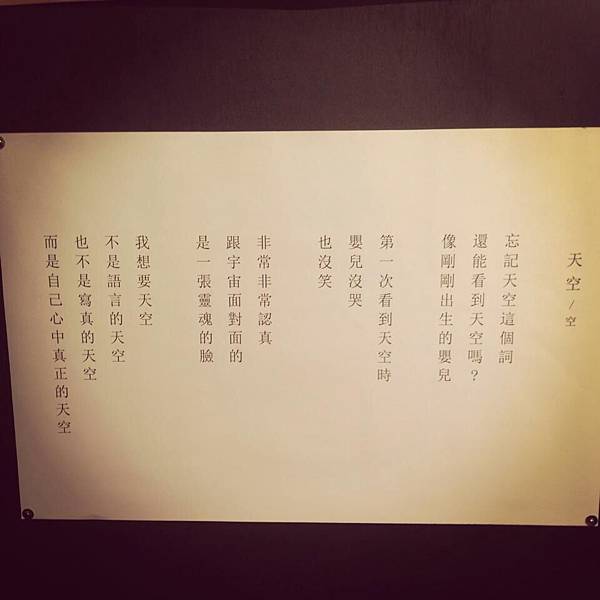 天空/空
忘記天空這個詞
還能看到天空嗎？
像剛剛出生的嬰兒
第一次看到天空時
嬰兒沒哭
也沒笑
非常非常認真
跟宇宙面對面的
是一張靈魂的臉
我想要天空
不是語言的天空
也不是寫真的天空
而是自己心中真正的天空